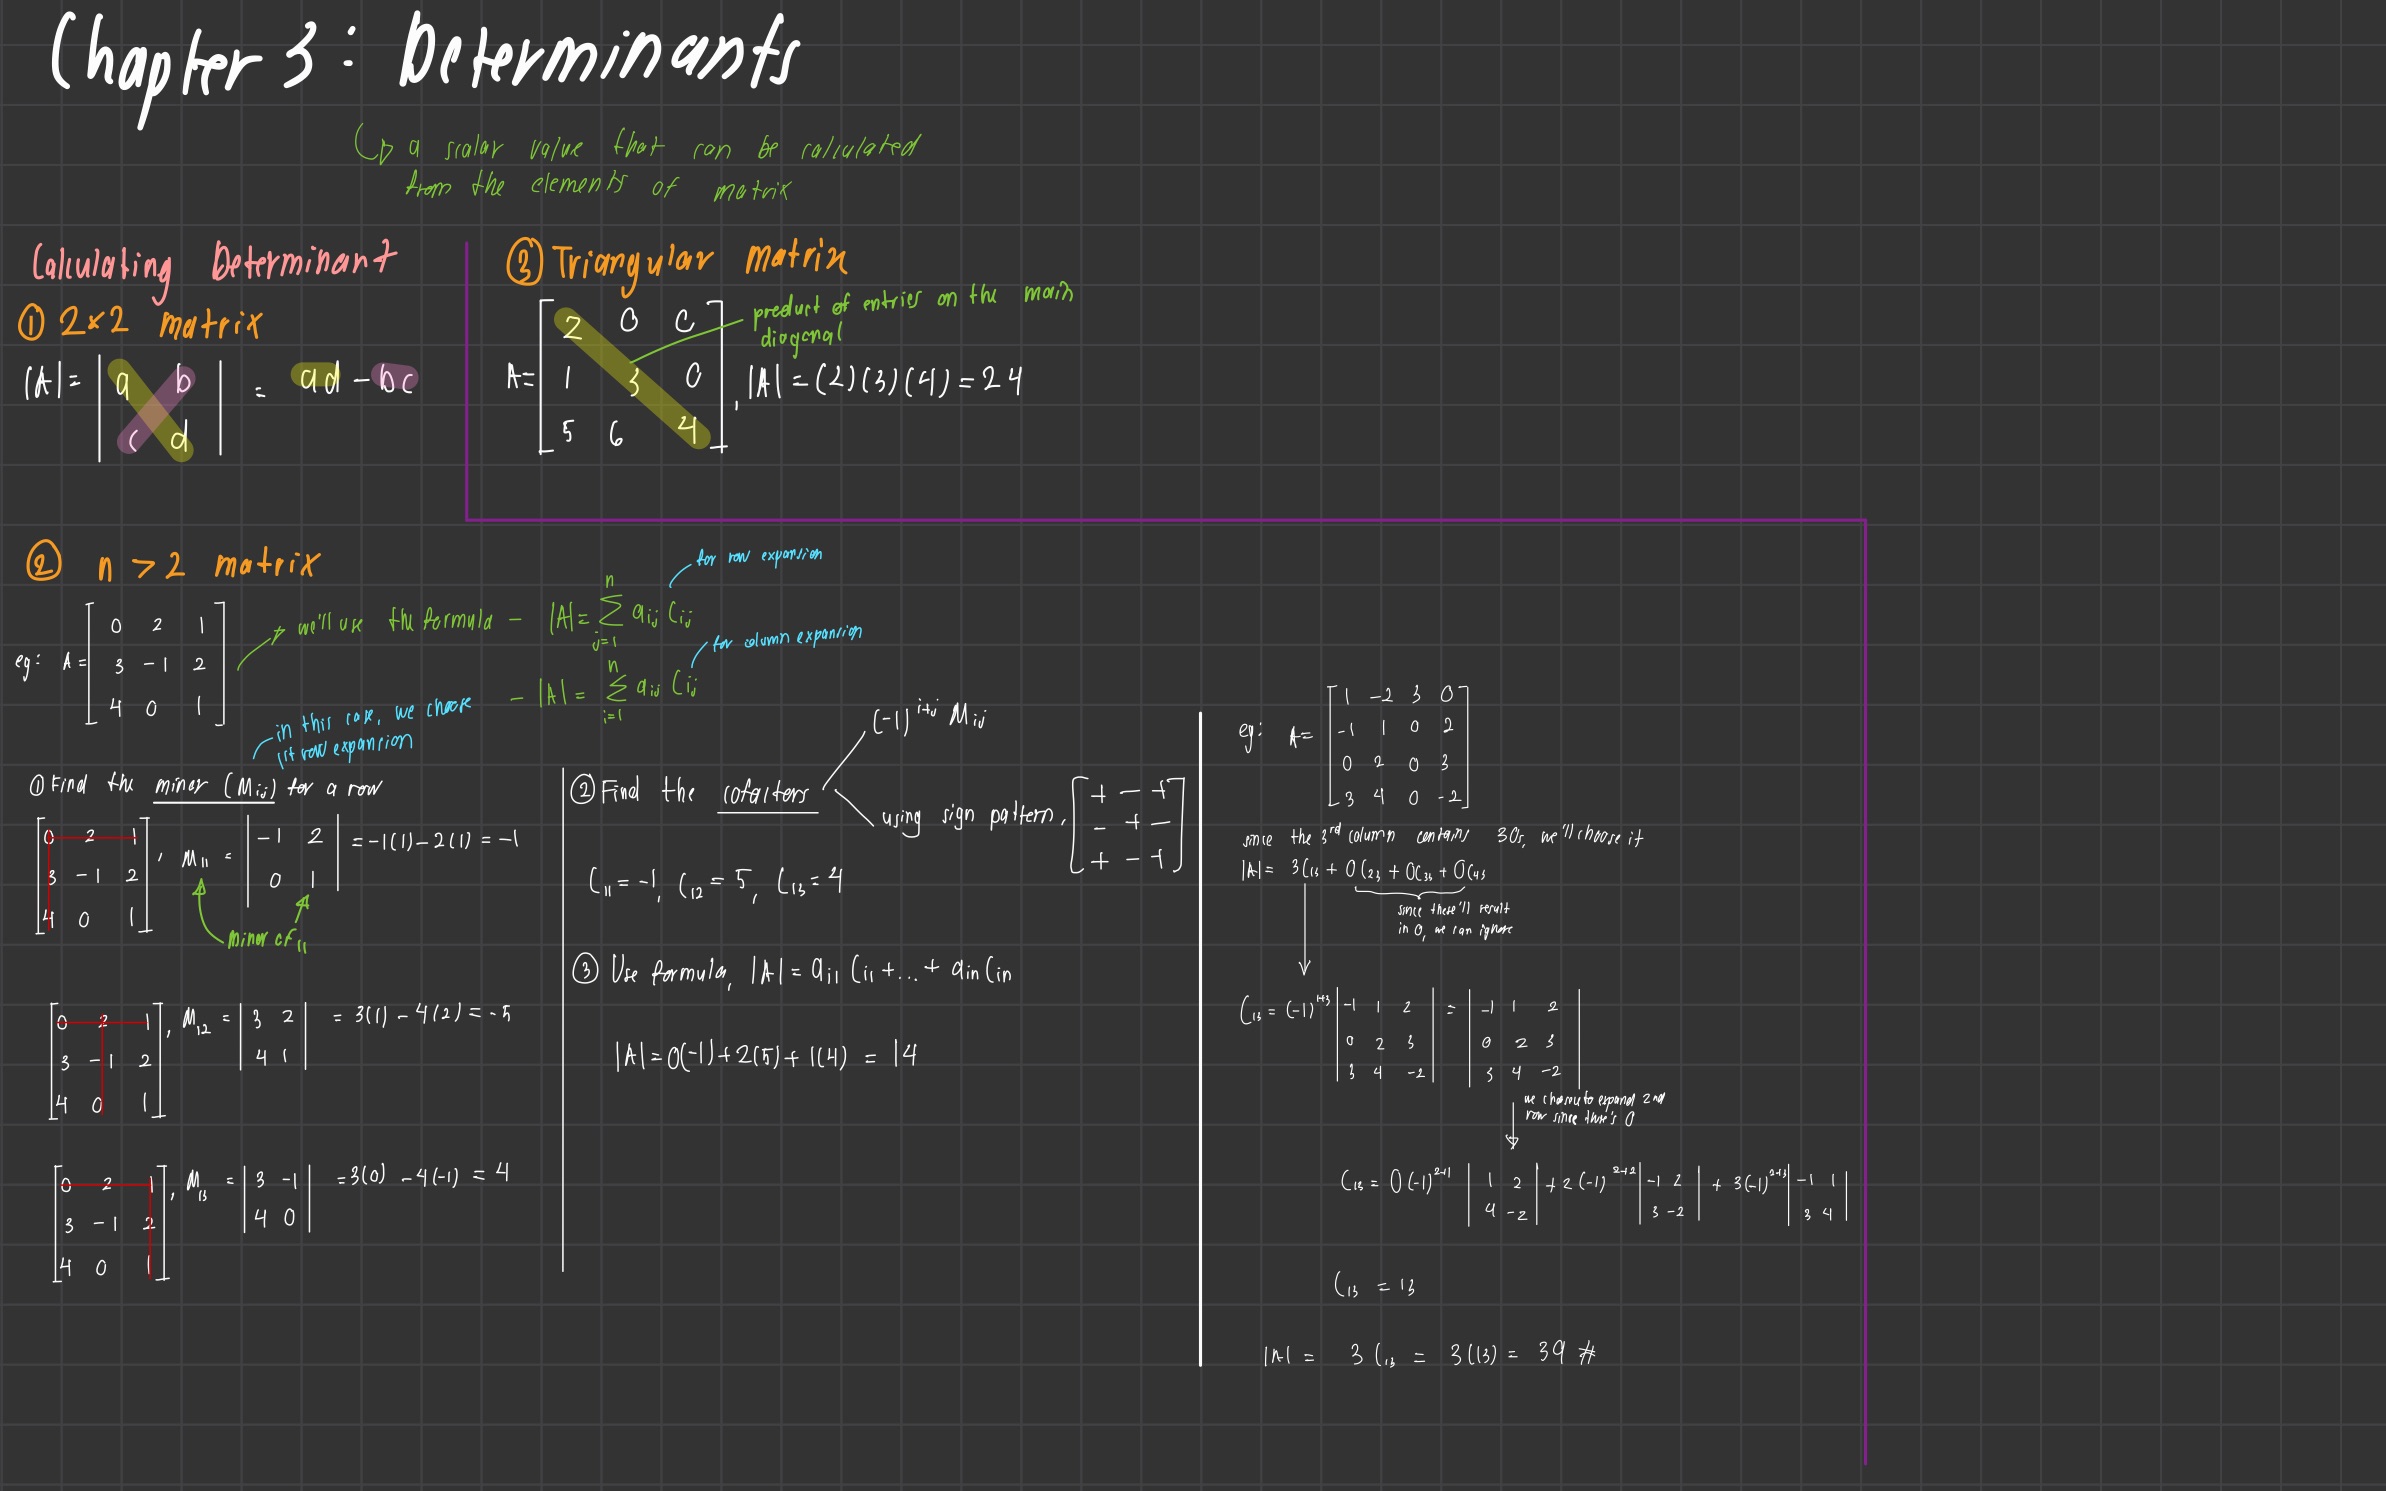 Chapter 3: Determinants
↳ a scalar value that can be calculated
from the elements of matrix
Calculating Determinant
① 2×2 matrix
|A| = | a b | = ad - bc
| c d |
③ Triangular matrix
product of entries on the main
diagonal
[ 2 0 0 ]
A = [ 1 3 0 ], |A| = (2)(3)(4) = 24
[ 5 6 4 ]
② n > 2 matrix
eg: A =
[ 0 2 1 ]
[ 3 -1 2 ]
[ 4 0 1 ]
→ we'll use the formula - |A| = n Σ j=1 aij Cij
for row expansion
- |A| = n Σ i=1 aij Cij
for column expansion
in this case, we choose
1st row expansion
① Find the minor (Mij) for a row
[ 0 2 1 ]
[ 3 -1 2 ]
[ 4 0 1 ]
, M11 = | -1 2 | = -1(1) - 2(1) = -1
| 0 1 |
minor of 11
[ 0 2 1 ]
[ 3 -1 2 ]
[ 4 0 1 ]
, M12 = | 3 2 | = 3(1) - 4(2) = -5
| 4 1 |
[ 0 2 1 ]
[ 3 -1 2 ]
[ 4 0 1 ]
, M13 = | 3 -1 | = 3(0) - 4(-1) = 4
| 4 0 |
② Find the cofactors
(-1)^i+j Mij
using sign pattern,
[ + - + ]
[ - + - ]
[ + - + ]
C11 = -1, C12 = 5, C13 = 4
③ Use formula, |A| = ai1 Ci1 + ... + ain Cin
|A| = 0(-1) + 2(5) + 1(4) = 14
eg: A =
[ 1 -2 3 0 ]
[ -1 1 0 2 ]
[ 0 2 0 3 ]
[ 3 4 0 -2 ]
since the 3rd column contains 3 0s, we'll choose it
|A| = 3C13 + 0C23 + 0C33 + 0C43
since these'll result
in 0, we can ignore
C13 = (-1)^1+3 | -1 1 2 | = | -1 1 2 |
| 0 2 3 | | 0 2 3 |
| 3 4 -2 | | 3 4 -2 |
we choose to expand 2nd
row since there's 0
C13 = 0(-1)^2+1 | 1 2 | + 2(-1)^2+2 | -1 2 | + 3(-1)^2+3 | -1 1 |
| 4 -2 | | 3 -2 | | 3 4 |
C13 = 13
|A| = 3C13 = 3(13) = 39 #